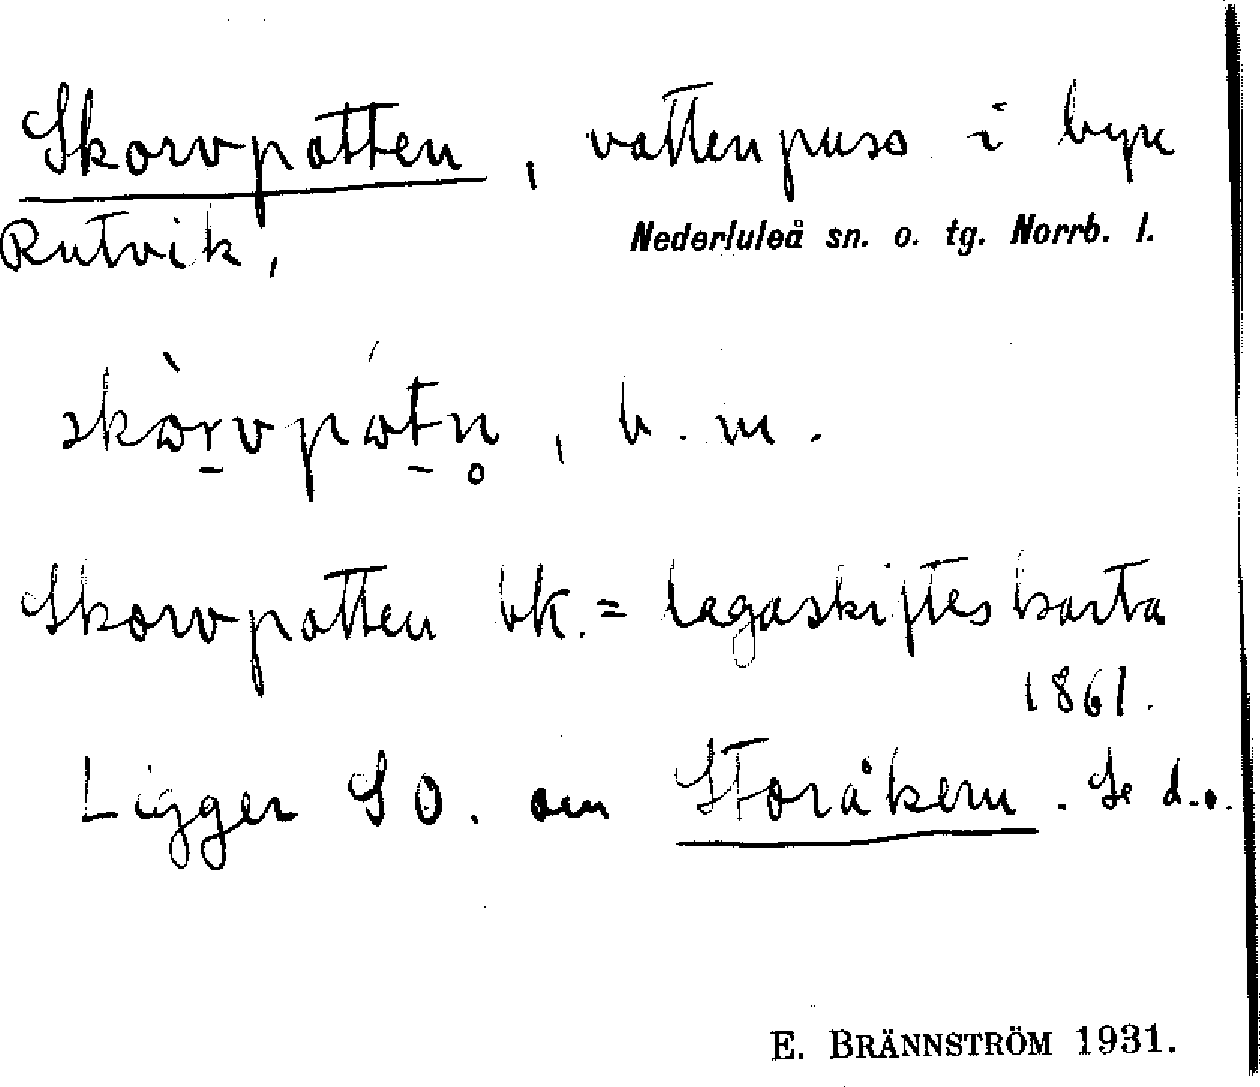 Skorvpotten, vattenpuss i byn
Rutvik, Nederluleå sn. o. tg. Norrb. l.
skòrvpótn̥, b. m.
Skorvpotten lk. = lagaskifteskarta
1861.
Ligger SO. om Storåkern. Se d.o.
E. BRÄNNSTRÖM 1931.